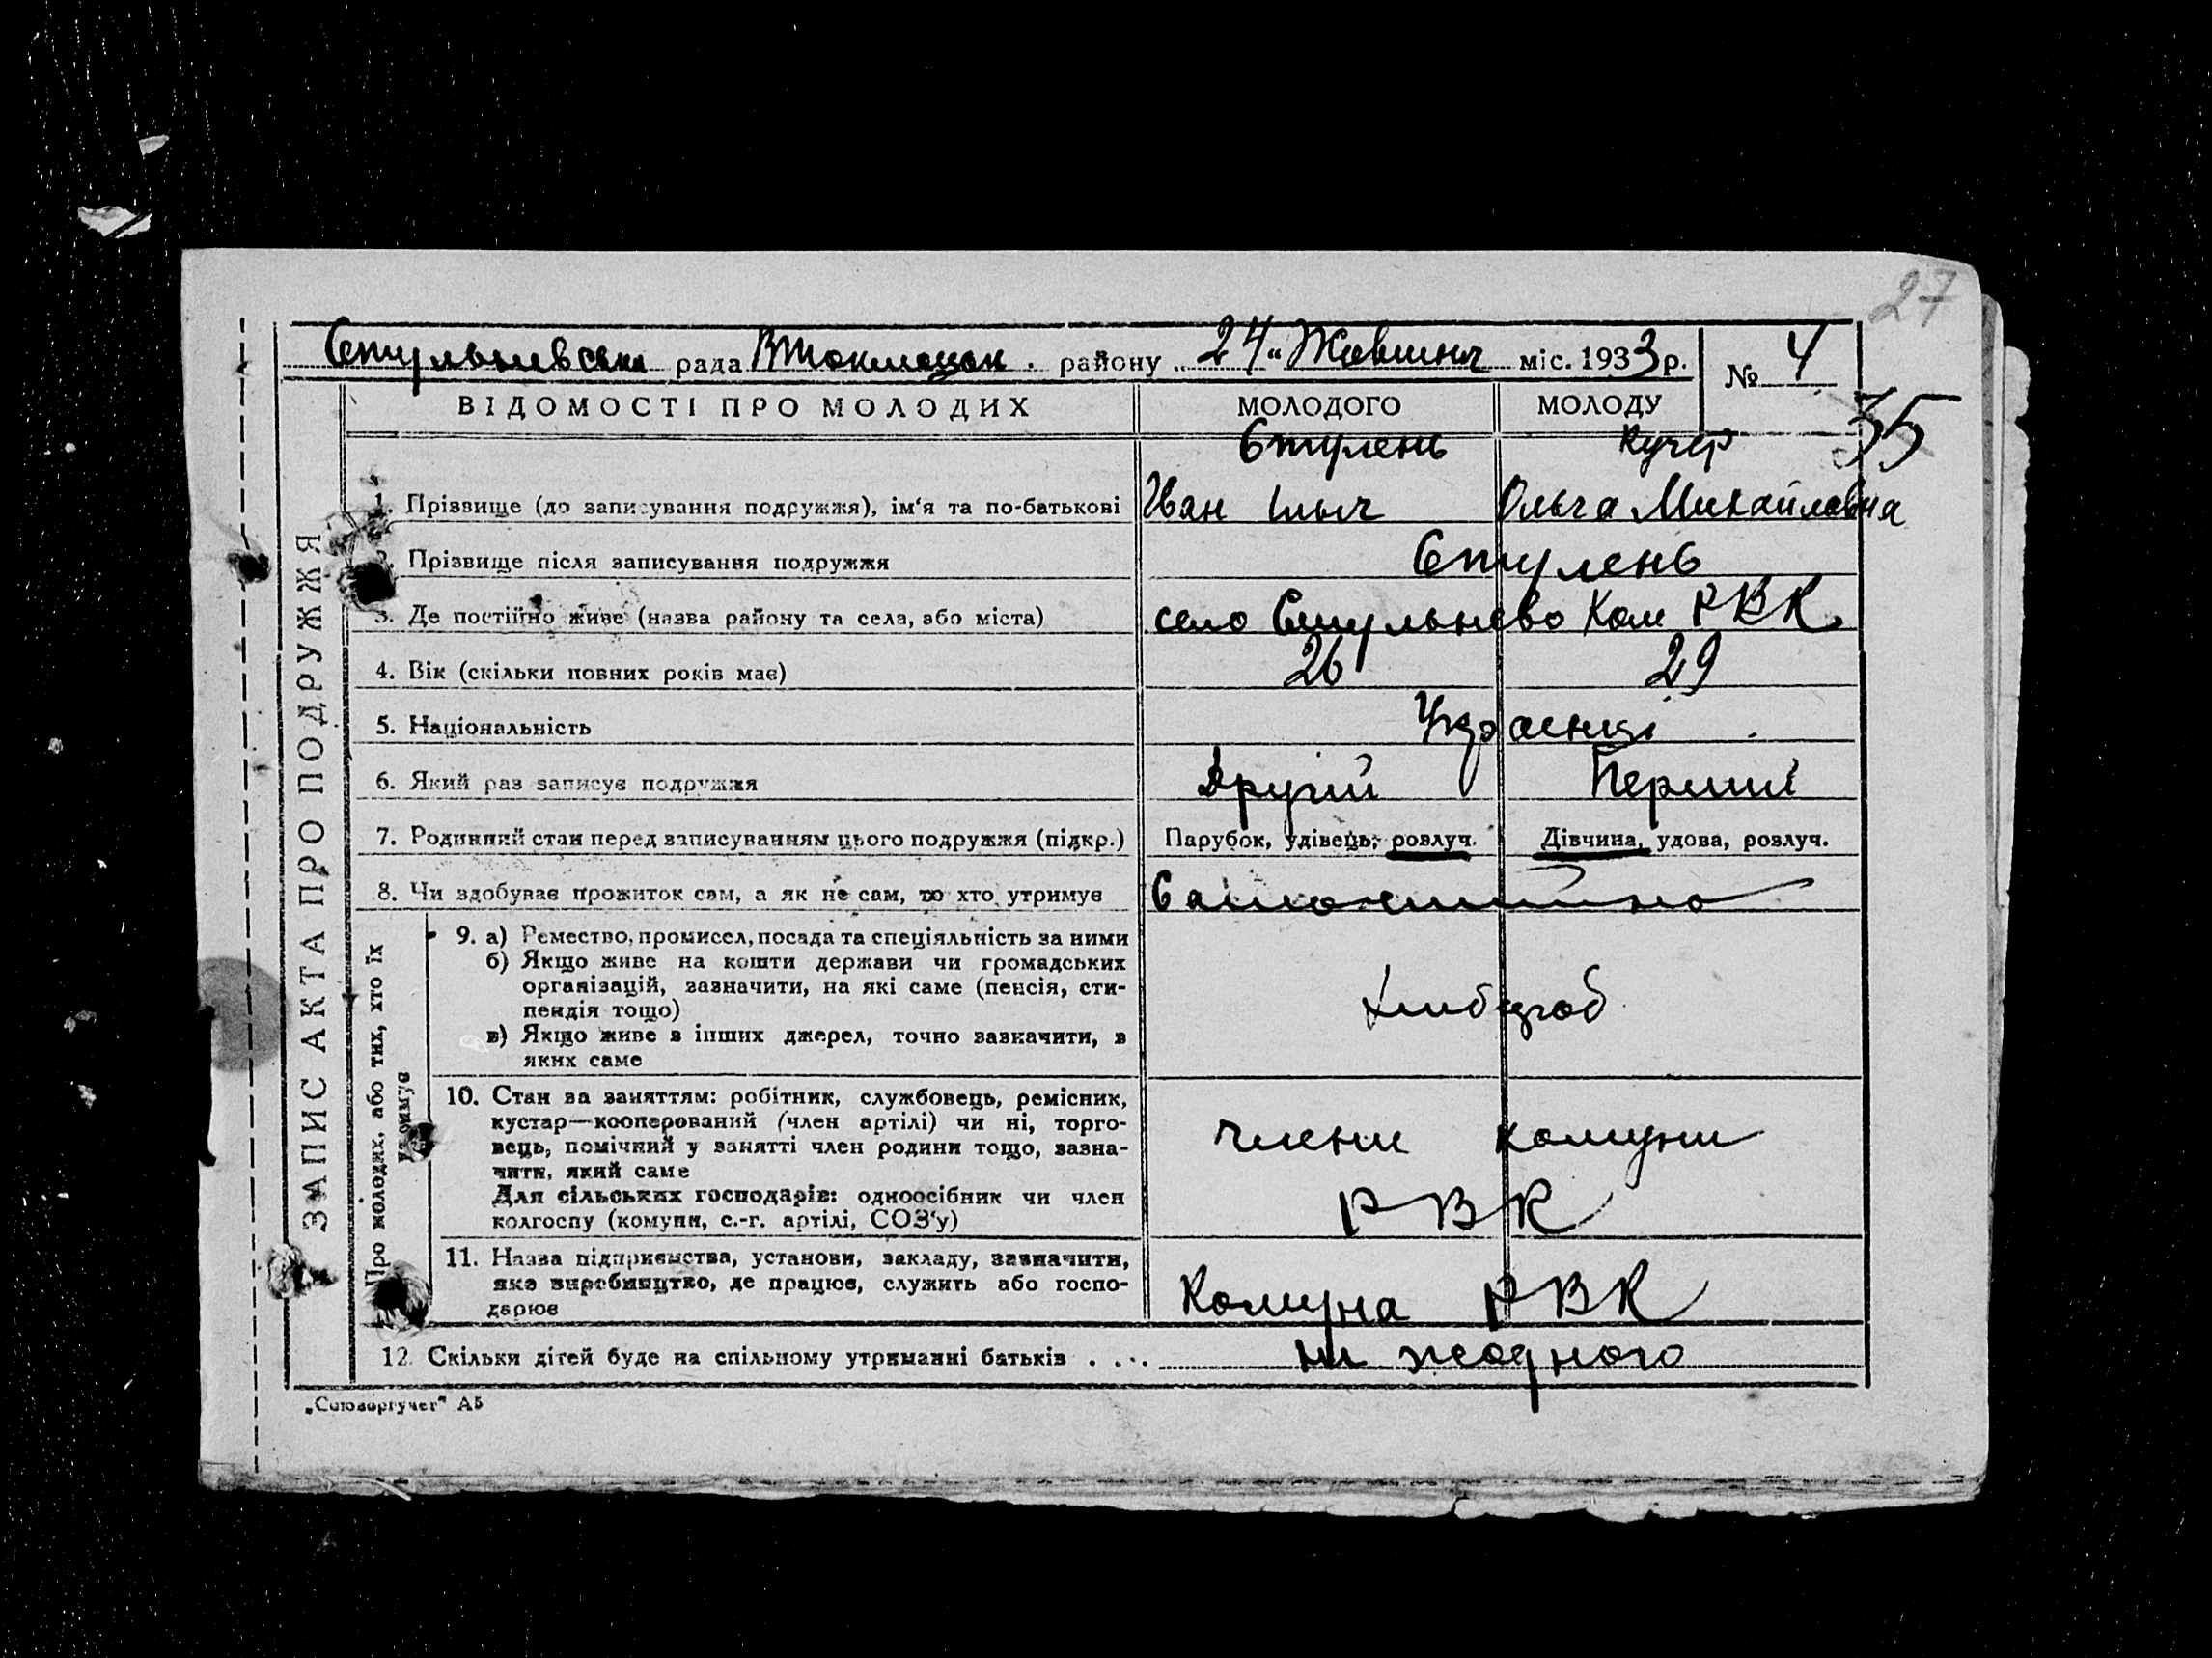 27
Стульнівська рада ВТокмацьк. району „24" Жовтня міс. 1933 р. № 4
35
ВІДОМОСТІ ПРО МОЛОДИХ МОЛОДОГО МОЛОДУ
ЗАПИС АКТА ПРО ПОДРУЖЖЯ
Стулень Кучер
1. Прізвище (до записування подружжя), ім'я та по-батькові Іван Ілыч Ольга Михайловна
2. Прізвище після записування подружжя Стулень
3. Де постійно живе (назва району та села, або міста) село Стульнево Ком РВК
4. Вік (скільки повних років має) 26 29
5. Національність Українці
6. Який раз записує подружжя Другий Перший
7. Родинний стан перед записуванням цього подружжя (підкр.) Парубок, удівець, розлуч. Дівчина, удова, розлуч.
8. Чи здобуває прожиток сам, а як не сам, то хто утримує Самостійно
Про молодих, або тих, хто їх
утримує
9. а) Ремество, промисел, посада та спеціяльність за ними
б) Якщо живе на кошти держави чи громадських
організацій, зазначити, на які саме (пенсія, сти-
пендія тощо)
в) Якщо живе з інших джерел, точно зазначити, з
яких саме
Хлібороб
10. Стан за заняттям: робітник, службовець, ремісник,
кустар—кооперований (член артілі) чи ні, торго-
вець, помічний у занятті член родини тощо, зазна-
чити, який саме
Для сільських господарів: одноосібник чи член
колгоспу (комуни, с.-г. артілі, СОЗ'у)
члени комуни
РВК
11. Назва підприємства, установи, закладу, зазначити,
яке виробництво, де працює, служить або госпо-
дарює
Комуна РВК
12. Скільки дітей буде на спільному утриманні батьків . . . . ни жодного
„Союзоргучет" А5